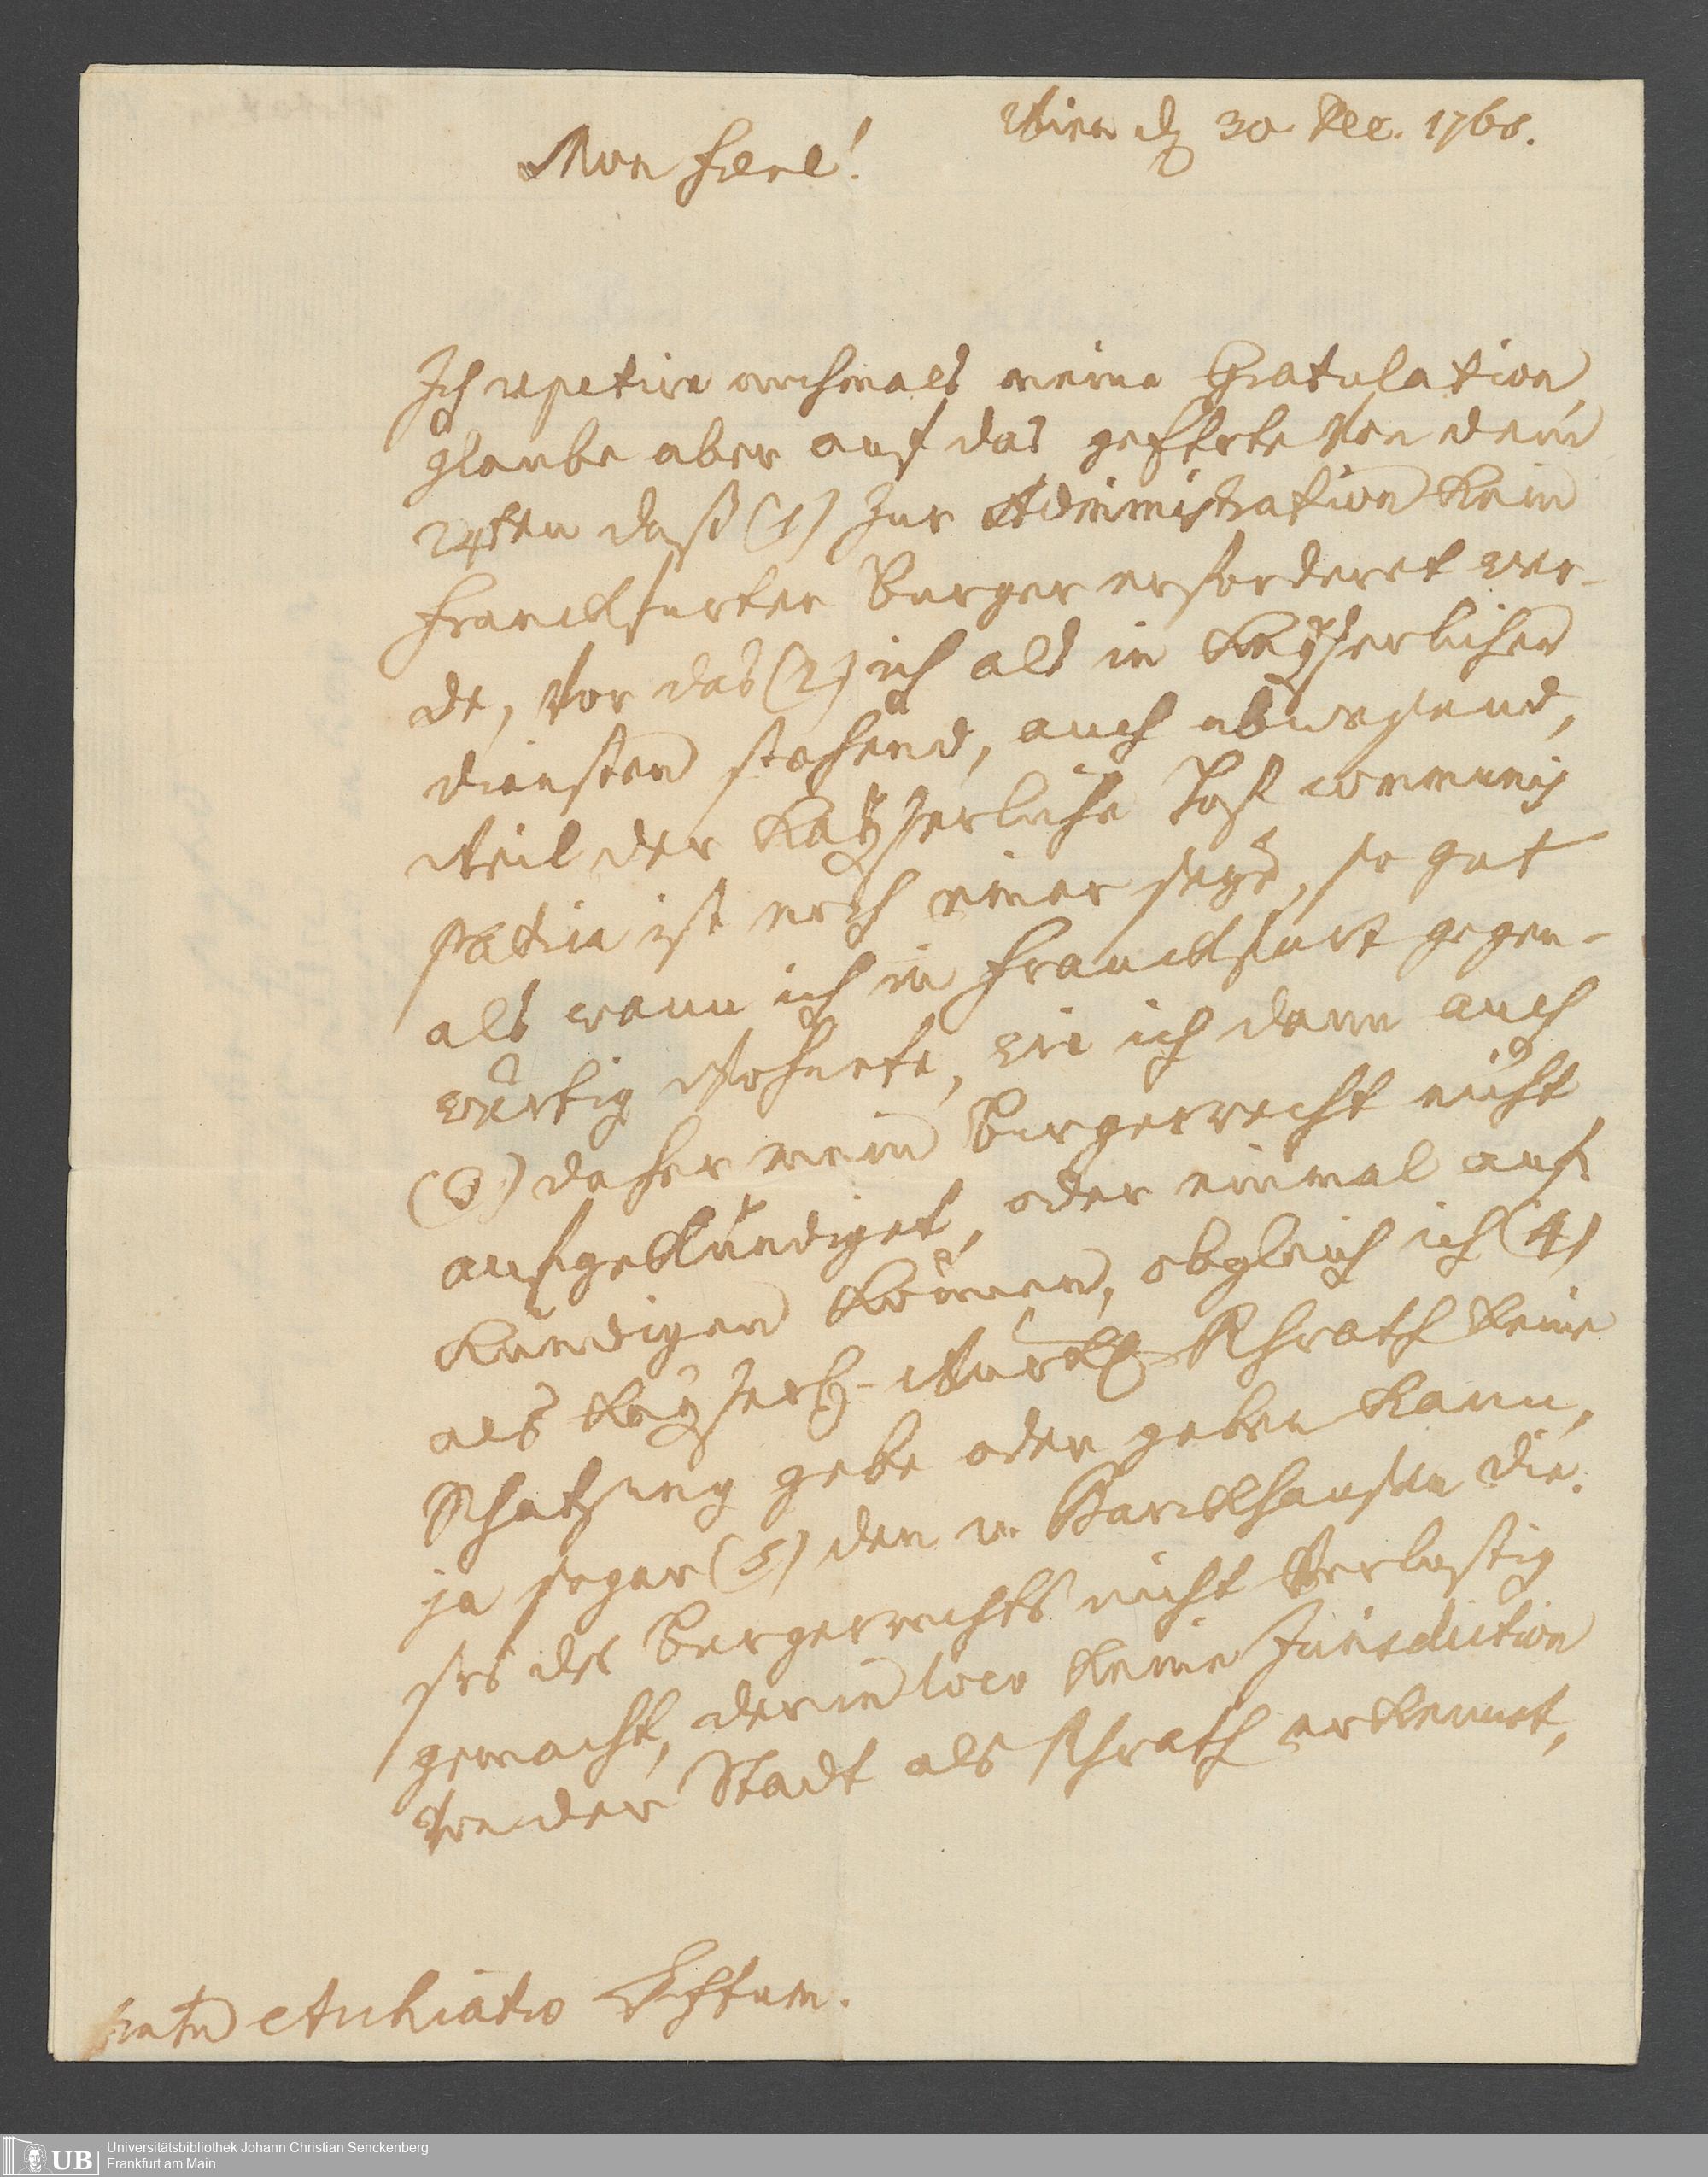 Wien dȝ 30 Dec. 1765.
Mon frere!
Ich repetire nochmals meine Gratulation,
glaube aber auf das geEhrte von dem
24sten daß (1) zur Administration kein
Franckfurter Burger erforderet wer-
de, vor das (2) ich als in Kayserlichen
diensten stehend, auch abwesend,
weil der Kayserliche Hof communis
patria ist noch einer seye, so gut
als wann ich in Franckfurt gegen-
wärtig wohnete, wie ich dann auch
(3) daher mein Burgerrecht nicht
aufgekündiget, oder einmal auf-
kündigen können, obgleich ich (4)
als Kayserl- würckl Rhrath keine
Schatzung gebe oder geben kann,
ja sogar (5) den v. Barckhausen die-
ses des Burgerrechts nicht verlustig
gemacht, der in loco keine Jurisdiction
von der Stadt als Rhrath erkennet,
fratri Archiatro
UB
Universitätsbibliothek Johann Christian Senckenberg
Frankfurt am Main